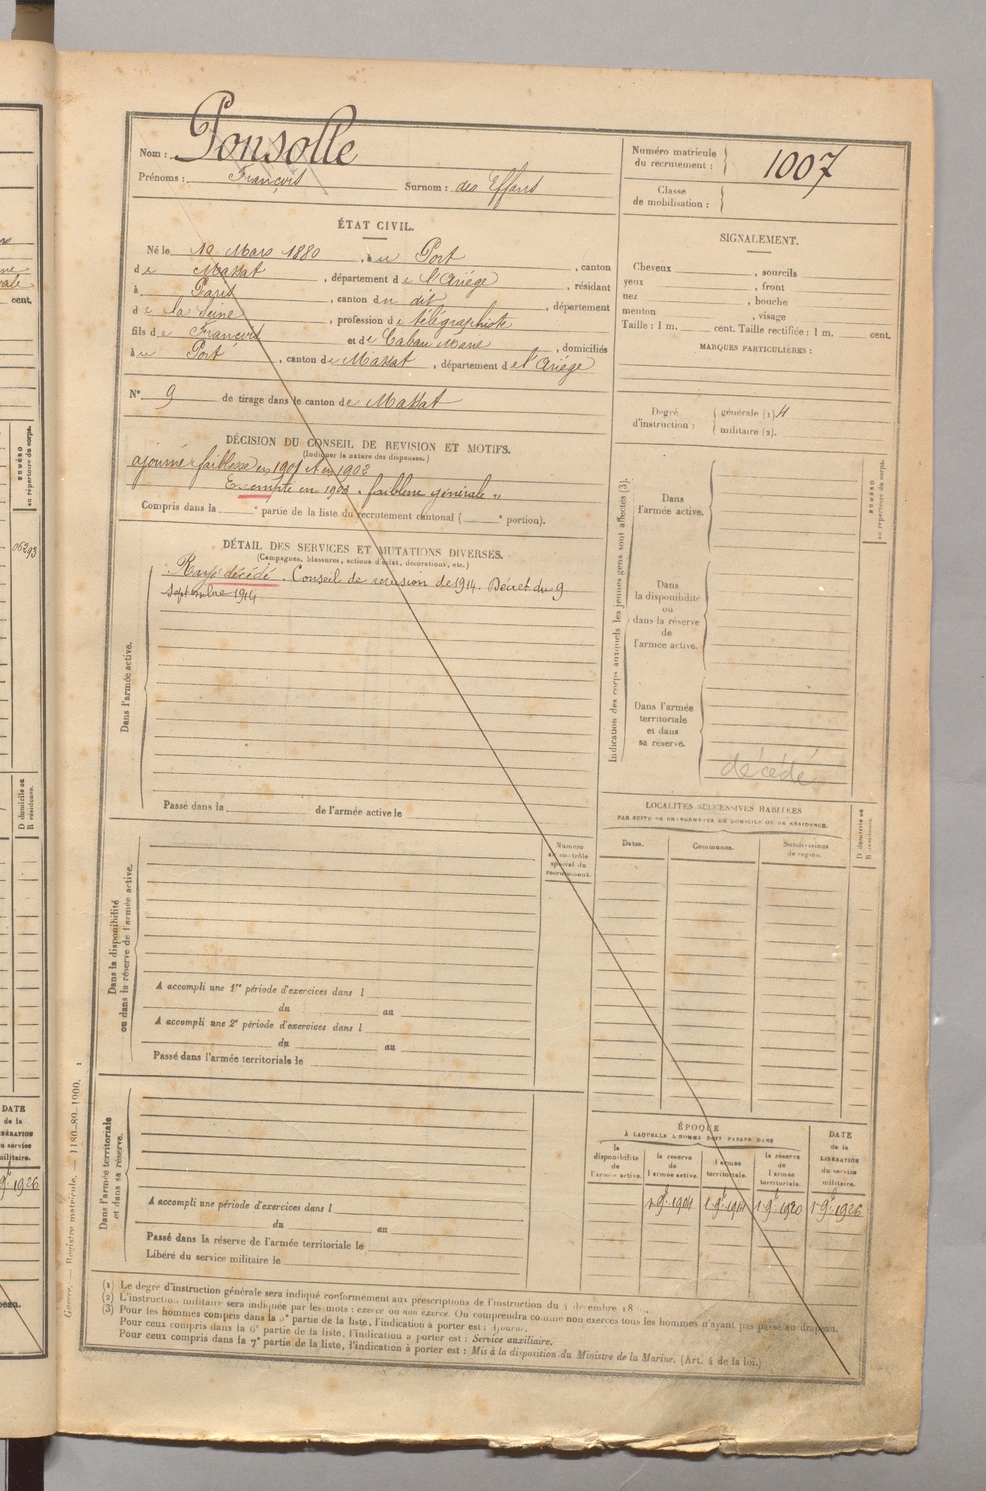 Nom : Ponsolle
Prénoms : François Surnom : des Effans
Numéro matricule du recrutement : 1007
Classe de mobilisation :
ÉTAT CIVIL.
Né le 12 Mars 1880, à u Port, canton
de Massat, département de l'Ariège, résidant
à Paris, canton du dit, département
de la Seine, profession de télégraphiste
fils de François et de Caban Marie, domiciliés
à u Port, canton de Massat, département de l'Ariège
N° 9 de tirage dans le canton de Massat
DÉCISION DU CONSEIL DE REVISION ET MOTIFS.
(Indiquer la nature des dispenses.)
ajourné faiblesse en 1901 et en 1902
Exempté en 1903 « faiblesse générale »
Compris dans la e partie de la liste du recrutement cantonal ( e portion).
DÉTAIL DES SERVICES ET MUTATIONS DIVERSES.
(Campagnes, blessures, actions d'éclat, décorations, etc.)
Rayé décédé. Conseil de révision de 1914. Décret du 9
septembre 1914
Dans l'armée active.
Passé dans la de l'armée active le
Dans la disponibilité
ou dans la réserve de l'armée active.
Numéro
au contrôle
spécial du
recrutement.
A accompli une 1re période d'exercices dans l
du au
A accompli une 2e période d'exercices dans l
du au
Passé dans l'armée territoriale le
Dans l'armée territoriale
et dans sa réserve.
A accompli une période d'exercices dans l
du au
Passé dans la réserve de l'armée territoriale le
Libéré du service militaire le
SIGNALEMENT.
Cheveux , sourcils
yeux , front
nez , bouche
menton , visage
Taille : 1 m. cent. Taille rectifiée : 1 m. cent.
MARQUES PARTICULIÈRES :
Degré d'instruction : générale (1). 4
militaire (2).
Indication des corps auxquels les jeunes gens sont affectés (3).
NUMÉRO
au répertoire du corps.
Dans
l'armée active.
Dans
la disponibilité
ou
dans la réserve
de
l'armée active.
Dans l'armée
territoriale
et dans
sa réserve.
décédé
LOCALITÉS SUCCESSIVES HABITÉES
PAR SUITE DE CHANGEMENTS DE DOMICILE OU DE RÉSIDENCE.
D domicile ou
R résidence.
Dates. Communes. Subdivisions de région.
ÉPOQUE
À LAQUELLE L'HOMME DOIT PASSER DANS
DATE
de la
LIBÉRATION
du service
militaire.
la disponibilité de l'armée active.
la réserve de l'armée active.
l'armée territoriale.
la réserve de l'armée territoriale.
1er 9bre 1904 1er 9bre 1914 1er 9bre 1920 1er 9bre 1926
(1) Le degré d'instruction générale sera indiqué conformément aux prescriptions de l'instruction du 4 décembre 18
(2) L'instruction militaire sera indiquée par les mots : exercé ou non exercé. On comprendra comme non exercés tous les hommes n'ayant pas passé au drapeau.
(3) Pour les hommes compris dans la 5e partie de la liste, l'indication à porter est : Ajourné.
Pour ceux compris dans la 6e partie de la liste, l'indication à porter est : Service auxiliaire.
Pour ceux compris dans la 7e partie de la liste, l'indication à porter est : Mis à la disposition du Ministre de la Marine. (Art. 4 de la loi.)
Guerre. — Registre matricule. — 1180-80-1900.
cent.
NUMÉRO
au répertoire du corps.
05293
D domicile ou
R résidence.
DATE
de la
LIBÉRATION
du service
militaire.
9bre 1926